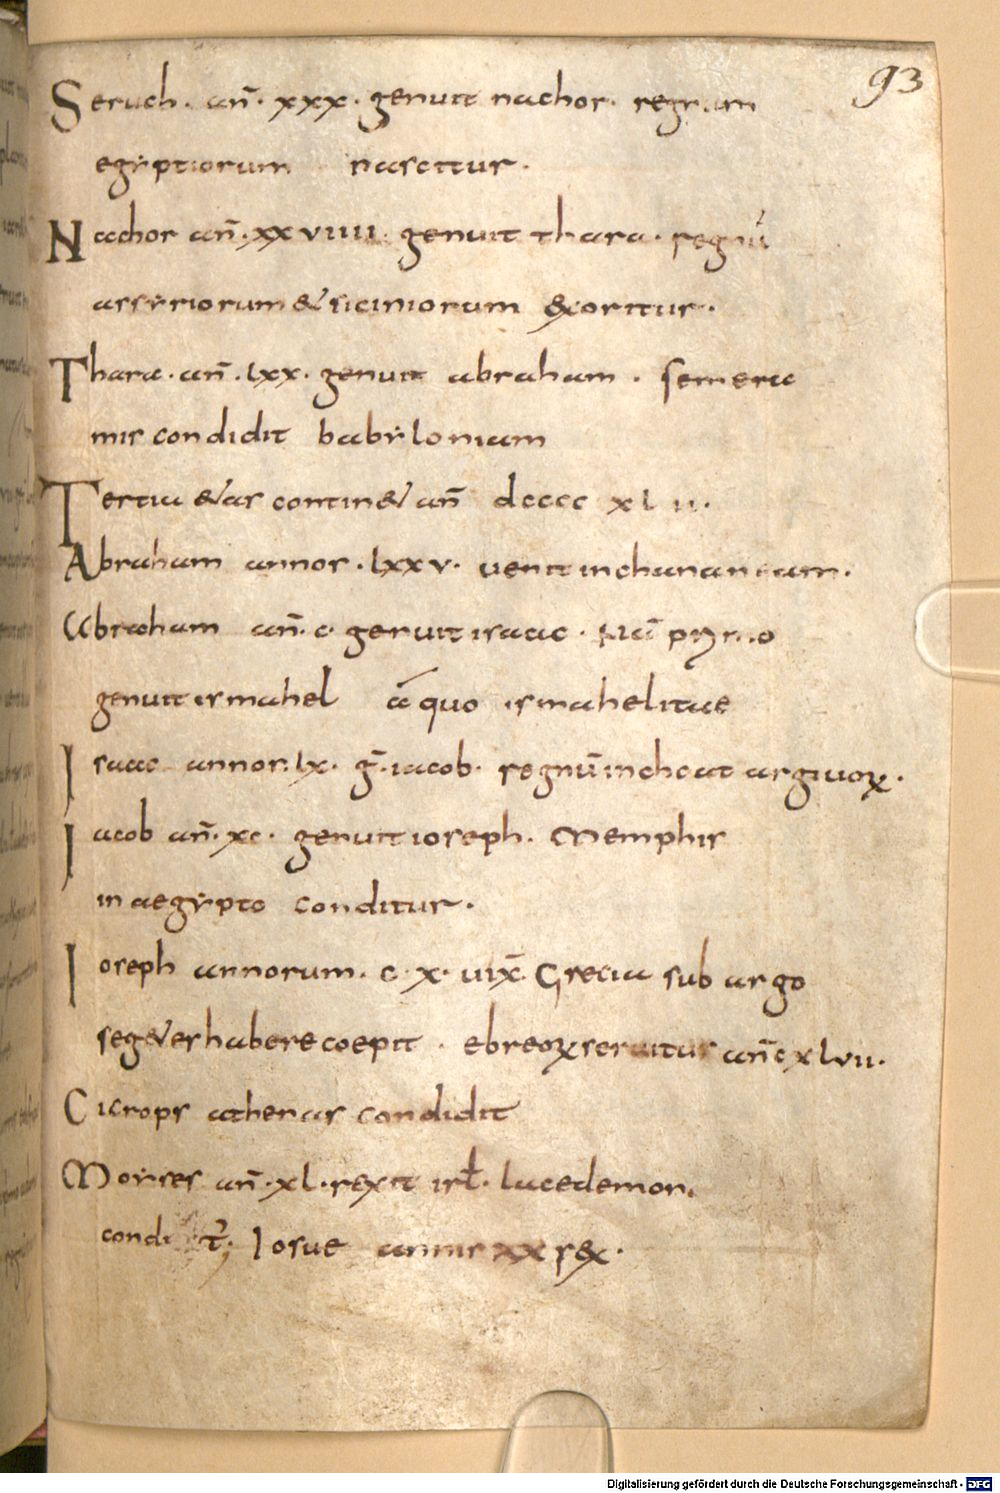 93
Seruch · an̄ · xxx · genuit nachor · regnum
egyptiorum nascitur ·
Nachor an̄ · xxviiii · genuit thara · regnū
assyriorum & siciniorum exoritur ·
Thara · an̄ · lxx · genuit abraham · semera
mis condidit babyloniam
Tertia &as contin& an̄ dcccc xl ii ·
Abraham annor · lxxv · uenit in chananeam ·
Abraham an̄ · c · genuit isaac · Nā prymo
genuit ismahel ā quo ismahelitae
Isaac annor · lx · ḡ · iacob · regnū inchoat argiuoꝝ ·
Iacob an̄ · xc · genuit ioseph · Memphis
in aegypto conditur ·
Ioseph annorum · c · x · uix̄ · Grecia sub argo
seg&es habere coepit · ebreoꝝ seruitus an̄ cxlvii ·
Cicrops athenas condidit
Moyses an̄ · xl · rexit isrł · lacedemon ·
condit̄ ; Iosue annis xx rex ·
Digitalisierung gefördert durch die Deutsche Forschungsgemeinschaft - DFG